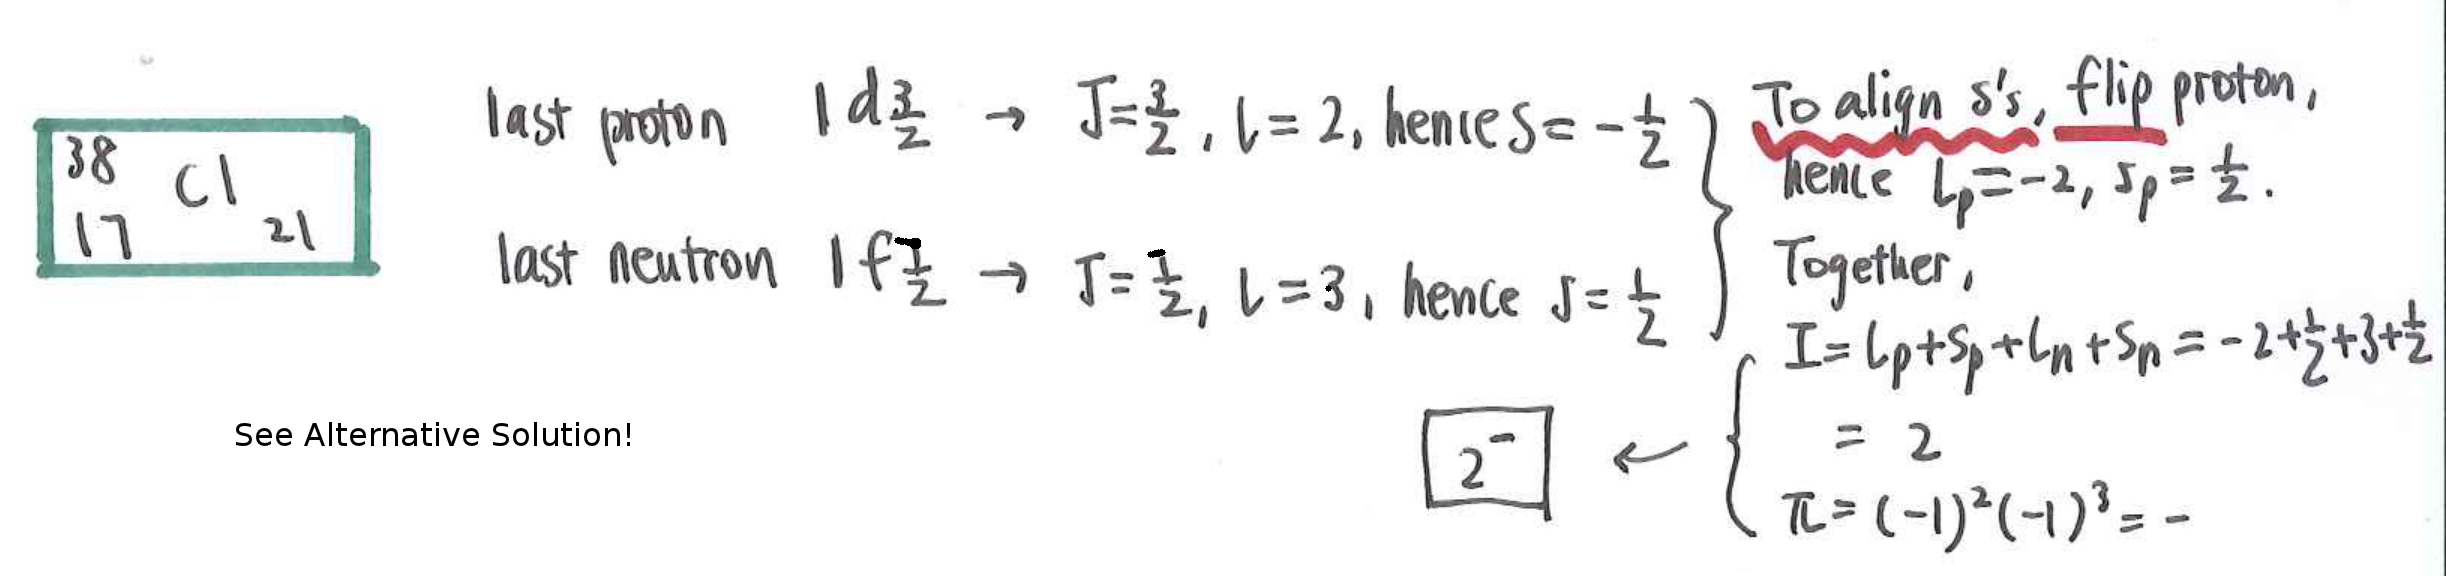 38
Cl
17 21
last proton 1d 3/2 → J = 3/2, l = 2, hence s = -1/2
last neutron 1f 7/2 → J = 7/2, l = 3, hence s = 1/2
To align s's, flip proton,
hence Lp = -2, sp = 1/2.
Together,
I = Lp + Sp + Ln + Sn = -2 + 1/2 + 3 + 1/2
= 2
π = (-1)² (-1)³ = -
2⁻ ←
See Alternative Solution!